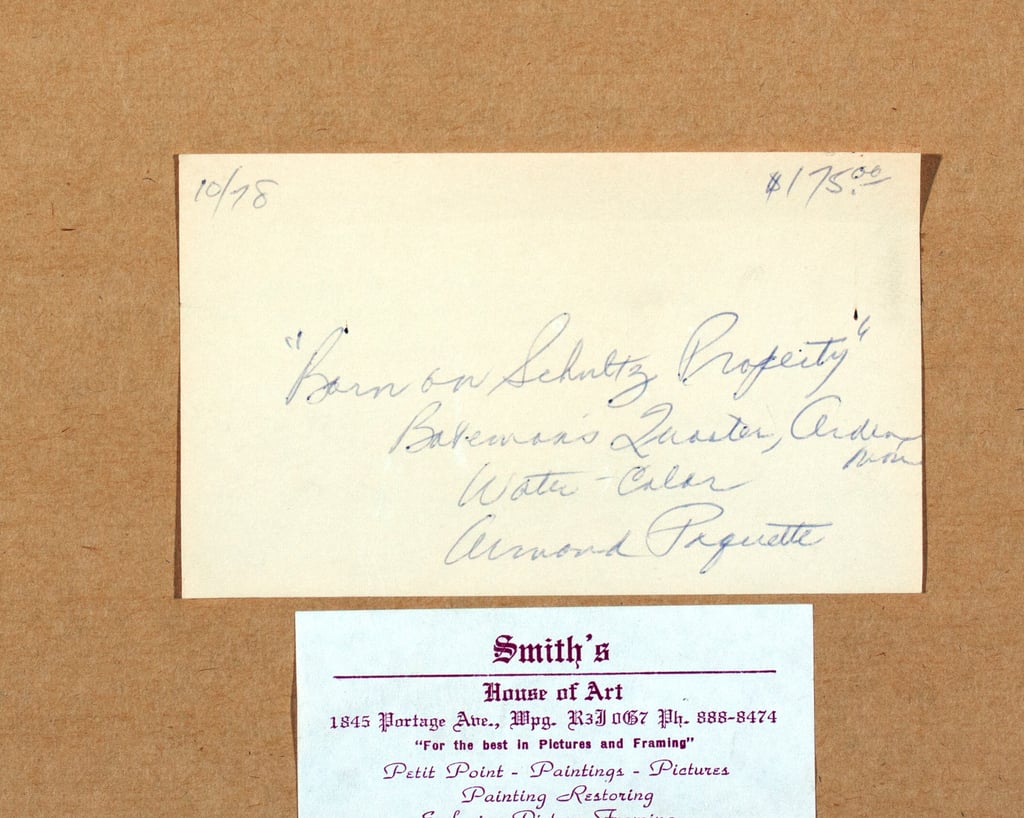 10/78
$175.00
"Barn on Schultz Property"
Bateman's Quarter, Arden
Man
Water-Color
Armond Paquette
Smith's
House of Art
1845 Portage Ave., Wpg. R3J 0G7 Ph. 888-8474
"For the best in Pictures and Framing"
Petit Point - Paintings - Pictures
Painting Restoring